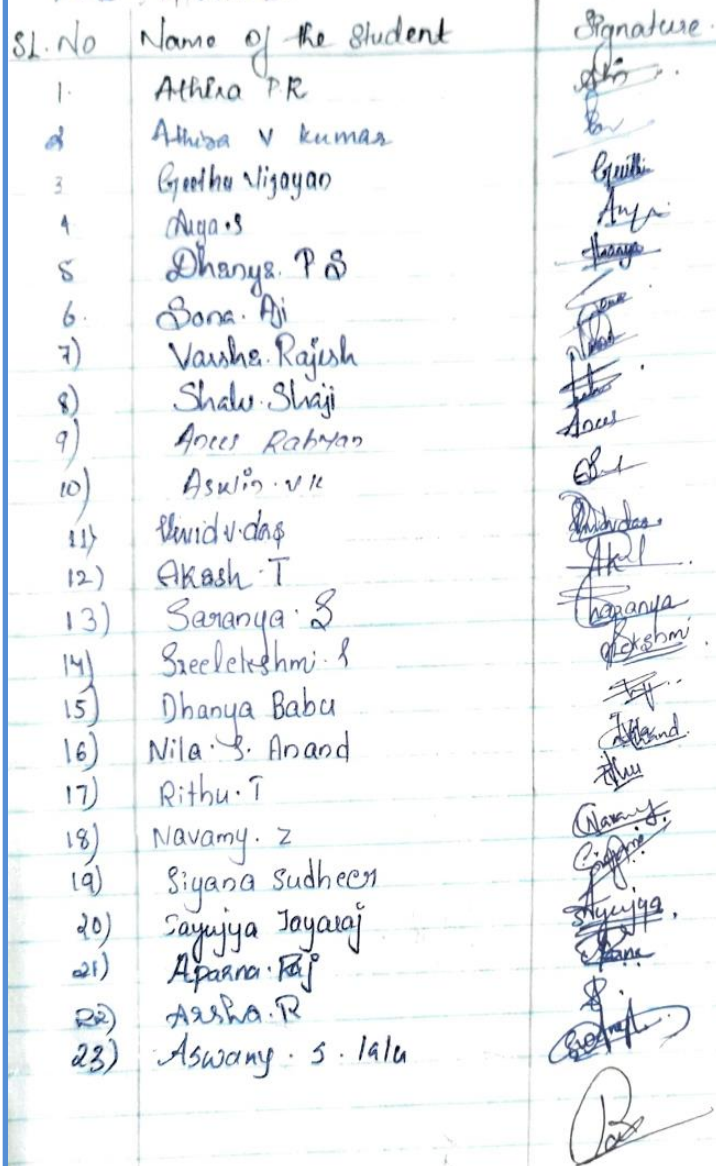 SL. No Name of the Student Signature.
1. Athira P.R
2 Athira V kumar
3 Geethu Vijayan Geethu
4 Arya.S Arya
5 Dhanya. P S Dhanya
6. Sona. Aji Sona
7) Varsha. Rajesh
8) Shalu. Shaji
9) Anees Rahman Anees
10) Aswin. VK
11) Vividv.das Vividvdas
12) Akash. T
13) Saranya. S Saranya
14) Sreelekshmi. S lekshmi
15) Dhanya Babu
16) Nila. S. Anand Anand
17) Rithu. T
18) Navamy. Z Navamy
19) Siyana Sudheer
20) Sayujya Jayaraj Sayujya
21) Aparna. Raj
22) Arsha. R
23) Aswany. S. lalu